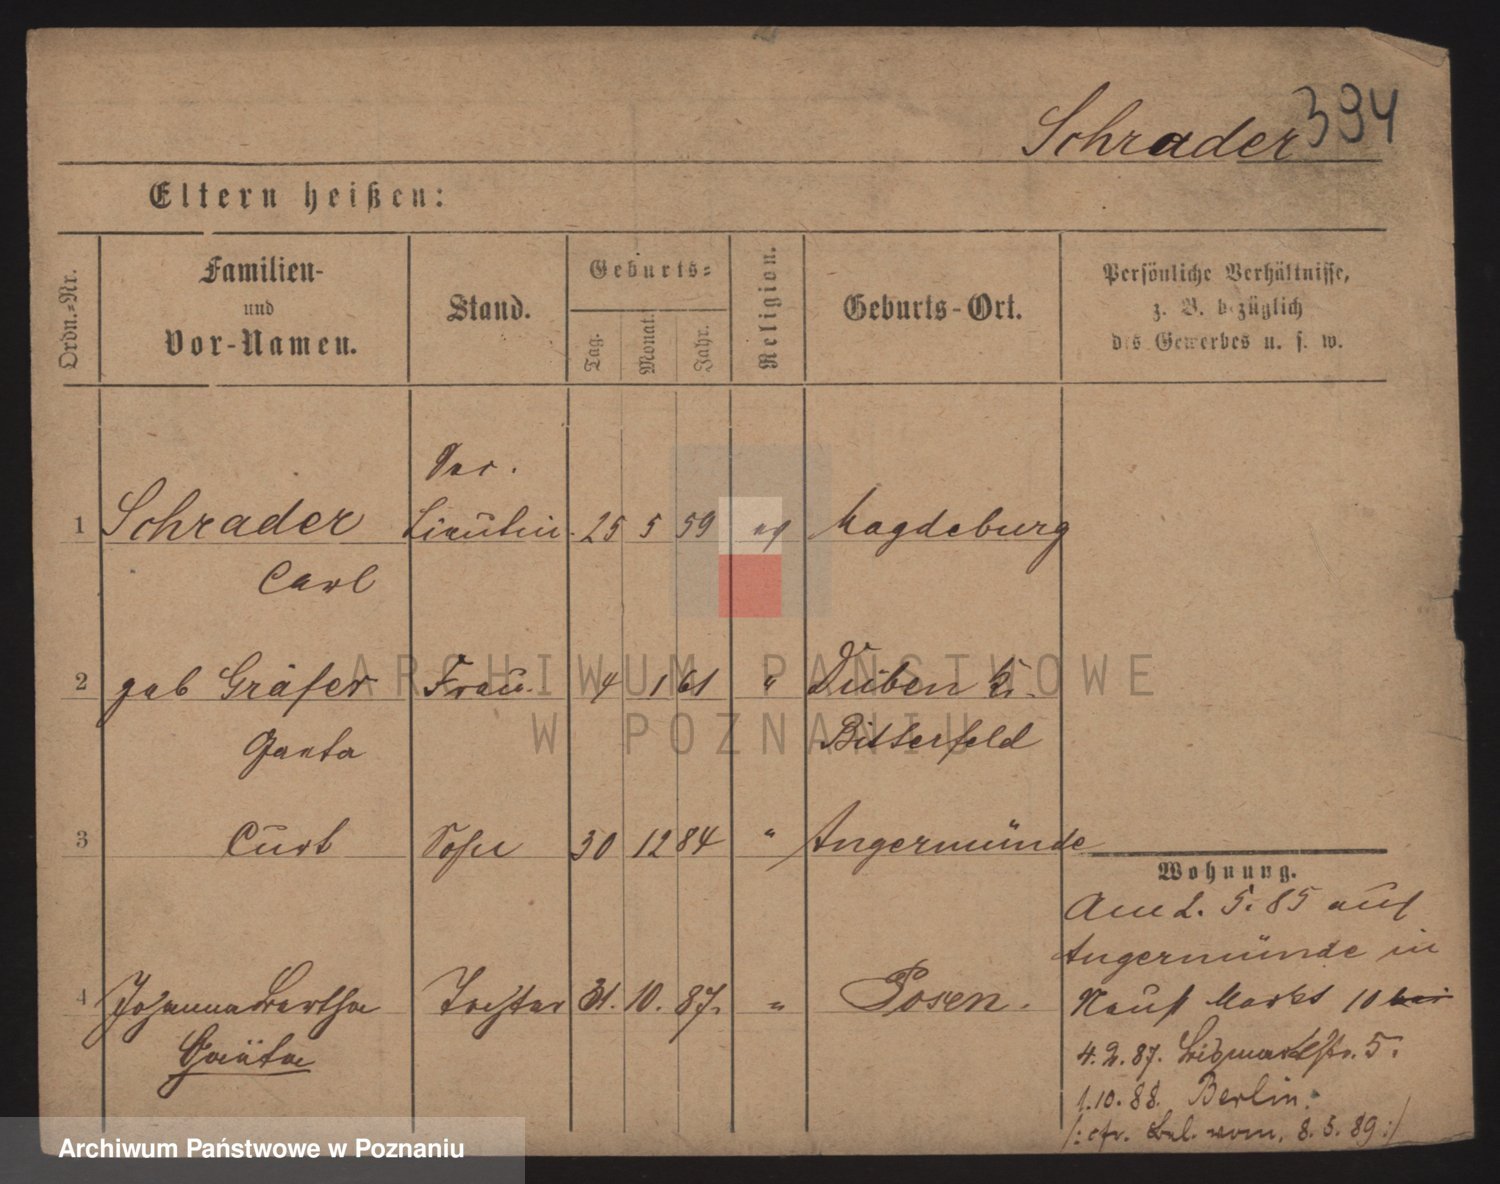 Schrader 394
Eltern heißen:
Ordn.-Nr.
Familien-
und
Vor-Namen.
Stand.
Geburts-
Tag.
Monat.
Jahr.
Religion.
Geburts-Ort.
Persönliche Verhältnisse,
z. B. bezüglich
des Gewerbes u. s. w.
1 Schrader 25 5 59 Magdeburg
Carl
2 geb Gräfer Frau 4 1 61 " Düben Kr.
Bitterfeld
3 Curt Sohn 30 12 84 " Angermünde
Wohnung.
Am 2. 5. 85 aus
Angermünde in
4 Johanna Bertha Tochter 31. 10. 87. " Posen.
Neust Markt 10
4. 2. 87. Bismarckstr. 5.
1. 10. 88. Berlin.
/: cfr. vom. 8. 5. 89 :/
ARCHIWUM PAŃSTWOWE
W POZNANIU
Archiwum Państwowe w Poznaniu